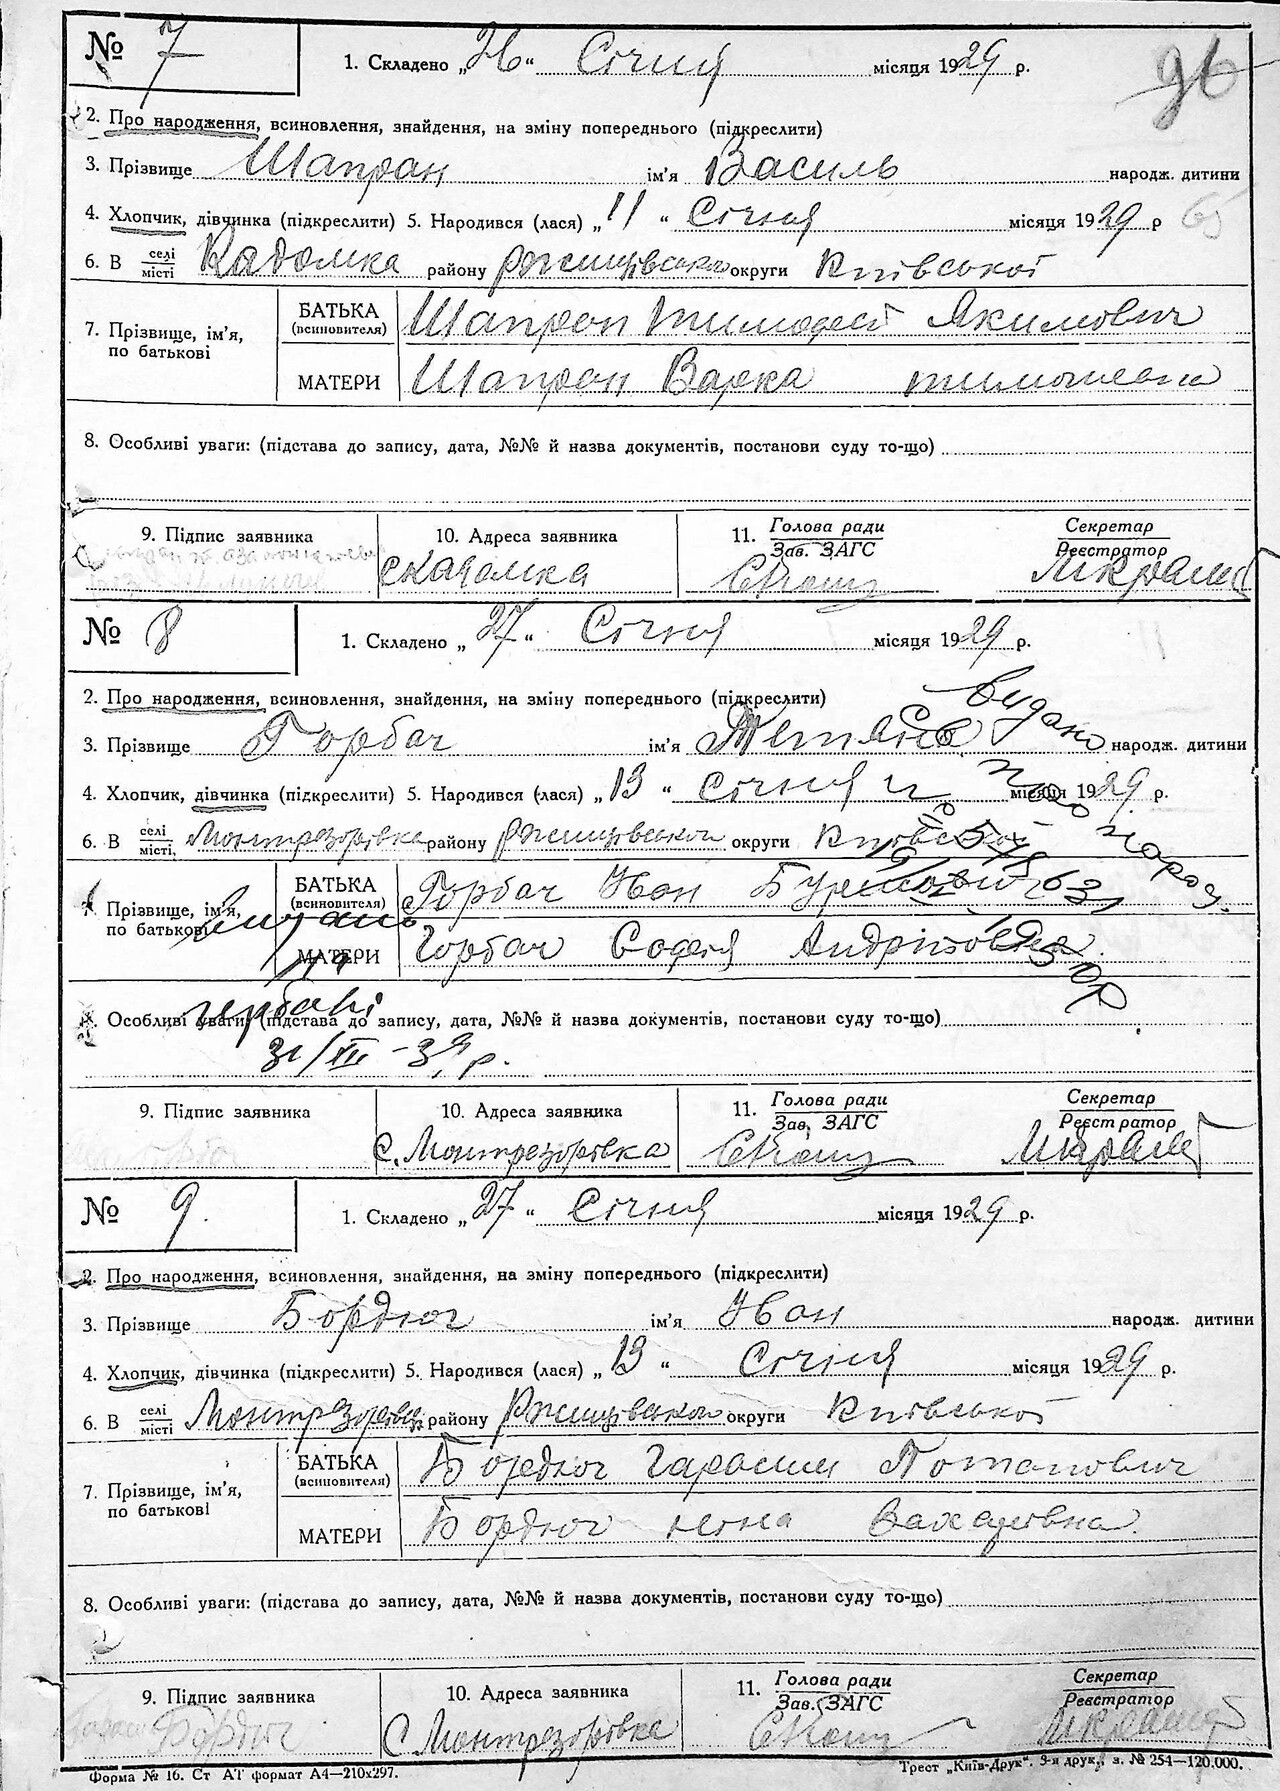 № 7
1. Складено „ “ Січня місяця 1929 р.
96
2. Про народження, всиновлення, знайдення, на зміну попереднього (підкреслити)
3. Прізвище Шапран ім'я Василь народж. дитини
4. Хлопчик, дівчинка (підкреслити) 5. Народився (лася) „11“ Січня місяця 1929 р
65
6. В селі місті Кадомка району Ржищівськом округи Київської
7. Прізвище, ім'я, по батькові
БАТЬКА (всиновителя) Шапран Тимофей Якимович
МАТЕРИ Шапран Варка
8. Особливі уваги: (підстава до запису, дата, №№ й назва документів, постанови суду то-що)
9. Підпис заявника
10. Адреса заявника
с Кадомка
11. Голова ради
Зав. ЗАГС
Секретар
Реєстратор
№ 8
1. Складено „27“ Січня місяця 1929 р.
2. Про народження, всиновлення, знайдення, на зміну попереднього (підкреслити)
видано
3. Прізвище Горбач ім'я Тетяна народж. дитини
4. Хлопчик, дівчинка (підкреслити) 5. Народився (лася) „13“ Січня місяця 1929 р.
6. В селі місті, Монтрезоровка району Ржищівськом округи Київської
7. Прізвище, ім'я, по батькові
БАТЬКА (всиновителя) Горбач Иван
МАТЕРИ Горбач София Андріовна
8. Особливі уваги: (підстава до запису, дата, №№ й назва документів, постанови суду то-що)
31/XII-39 р.
9. Підпис заявника
10. Адреса заявника
с. Монтрезоровка
11. Голова ради
Зав. ЗАГС
Секретар
Реєстратор
№ 9.
1. Складено „27“ Січня місяця 1929 р.
2. Про народження, всиновлення, знайдення, на зміну попереднього (підкреслити)
3. Прізвище Бордюг ім'я Иван народж. дитини
4. Хлопчик, дівчинка (підкреслити) 5. Народився (лася) „13“ Січня місяця 1929 р.
6. В селі місті Монтрезоровка району Ржищівськом округи Київської
7. Прізвище, ім'я, по батькові
БАТЬКА (всиновителя) Бордюг Гарасим Потапович
МАТЕРИ Бордюг Захаровна
8. Особливі уваги: (підстава до запису, дата, №№ й назва документів, постанови суду то-що)
9. Підпис заявника
Бордюг
10. Адреса заявника
с Монтрезоровка
11. Голова ради
Зав. ЗАГС
Секретар
Реєстратор
Форма № 16. Ст АІ формат А4—210х297.
Трест „Київ-Друк“. 3-я друк., з. № 254—120.000.